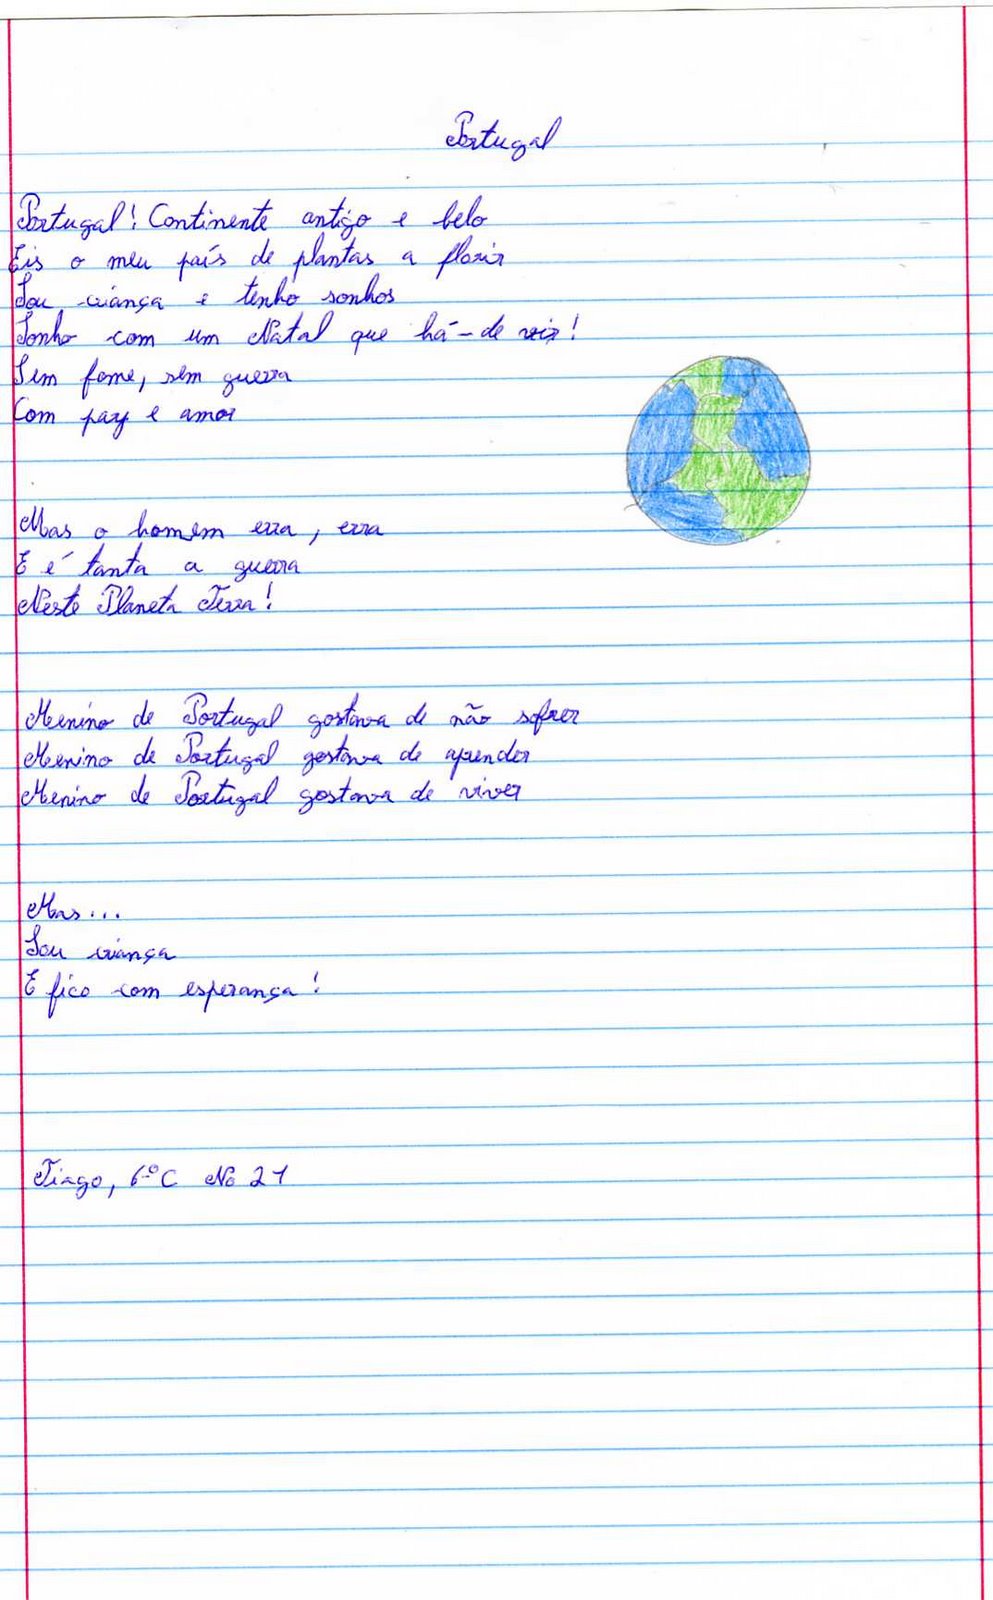 Portugal
Portugal! Continente antigo e belo
Eis o meu país de plantas a florir
Sou criança e tenho sonhos
Sonho com um Natal que há-de vir!
Sem fome, sem guerra
Com paz e amor
Mas o homem erra, erra
E é tanta a guerra
Neste Planeta Terra!
Menino de Portugal gostava de não sofrer
Menino de Portugal gostava de aprender
Menino de Portugal gostava de viver
Mas...
Sou criança
E fico com esperança!
Tiago, 6ºC Nº 21